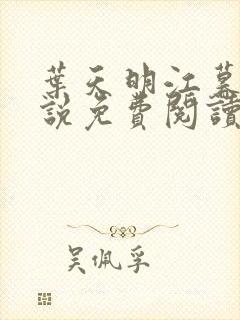 葉天明江慕
說免費閱讀
吳佩孚